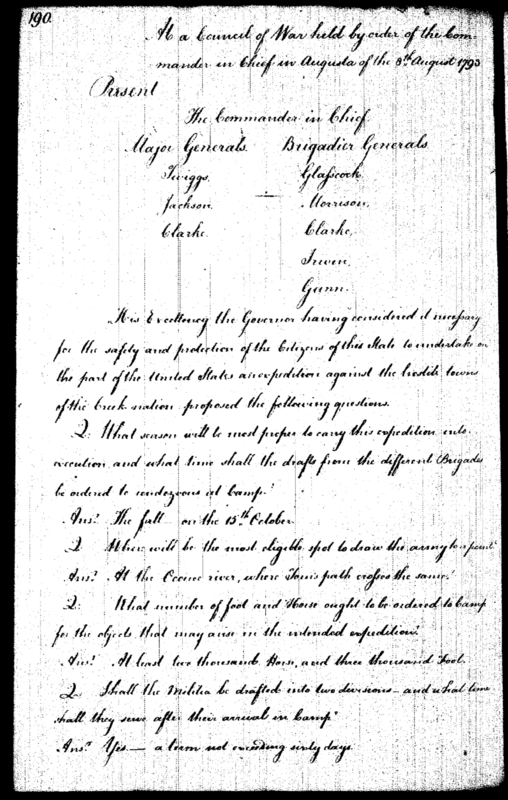 190.
At a Council of War held by order of the Com-
mander in Chief in Augusta of the 8th August 1793
Present
The Commander in Chief
Major Generals. Brigadier Generals
Twiggs, Glasscock.
Jackson. Morrison,
Clarke. Clarke,
Irwin,
Gunn.
His Excellency the Governor having considered it necessary
for the safety and protection of the Citizens of this State to undertake on
the part of the United States an expedition against the hostile towns
of the Creek nation proposed the following questions.
Q: What season will be most proper to carry this expedition into
execution and what time shall the drafts from the different Brigades
be ordered to rendezvous at Camp?
Ansr. The fall on the 15th October.
Q Where will be the most eligible spot to draw the army to a point
Ansr. At the Oconee river, where Tom's path crosses the same.
Q: What number of foot and Horse ought to be ordered to Camp
for the objects that may arise in the intended expedition?
Ansr. At least two thousand Horse, and three thousand Foot.
Q. Shall the Militia be drafted into two divisions – and what time
shall they serve after their arrival in Camp?
Ansr. Yes — a term not exceeding sixty days.